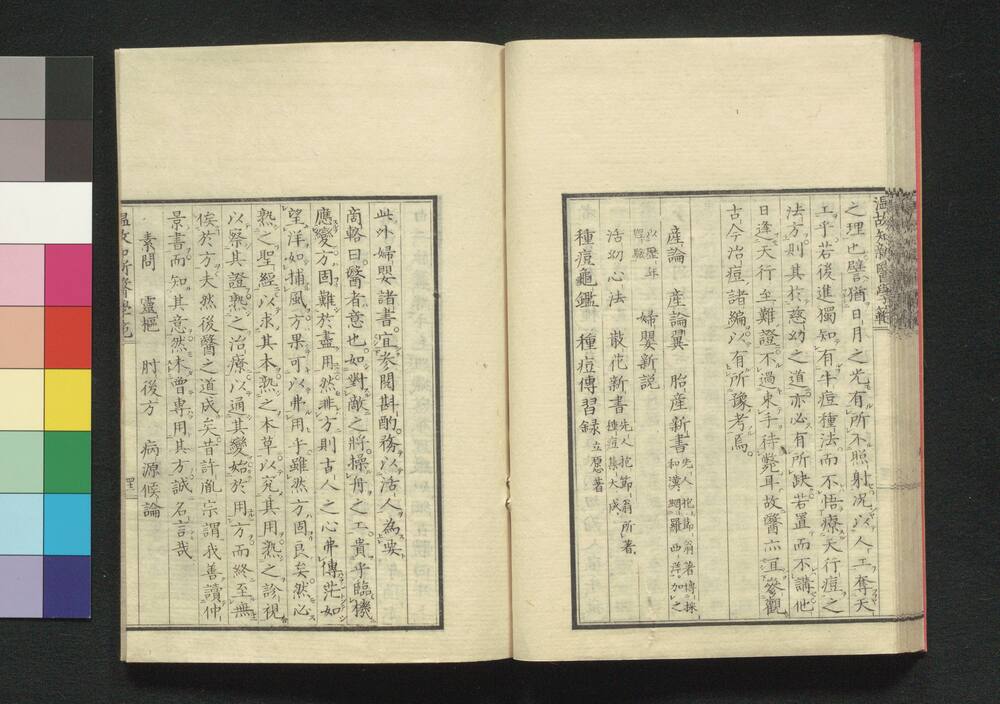 温故知新醫學範
之理也譬猶日月之光有所不照射況以人工奪天
工乎若後進獨知有牛痘種法而不悟療天行痘之
法方則其於慈幼之道亦必有所缺若置而不講他
日逢天行至難證不過束手待斃耳故醫亦宜參觀
古今治痘諸編以有所豫考焉
産論 産論翼 胎産新書 先人抱節翁著博採
和漢網羅西洋加之
以歴年
 婦嬰新説
活幼心法 散花新書 先人抱節翁所著
種痘集大成
種痘龜鑑 種痘傳習録 立原著
此外婦嬰諸書宜參閲斟酌務以活人為要
商輅曰醫者意也如對敵之將操舟之工貴乎臨機
應變方固難於盡用然非方則古人之心弗傳茫如
望洋如捕風方果可以弗用乎雖然方固良矣然必
熟之聖經以求其本熟之本草以究其用熟之診視
以察其證熟之治療以通其變始於用方而終至無
俟於方夫然後醫之道成矣昔許胤宗謂我善讀仲
景書而知其意然未曾專用其方誠名言哉
素問 靈樞 肘後方 病源候論
温故知新醫學範